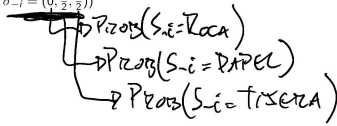 σ₋ᵢ = (0, 1/2, 1/2))
PROB(S-i = ROCA)
PROB(S-i = PAPEL)
PROB(S-i = TIJERA)